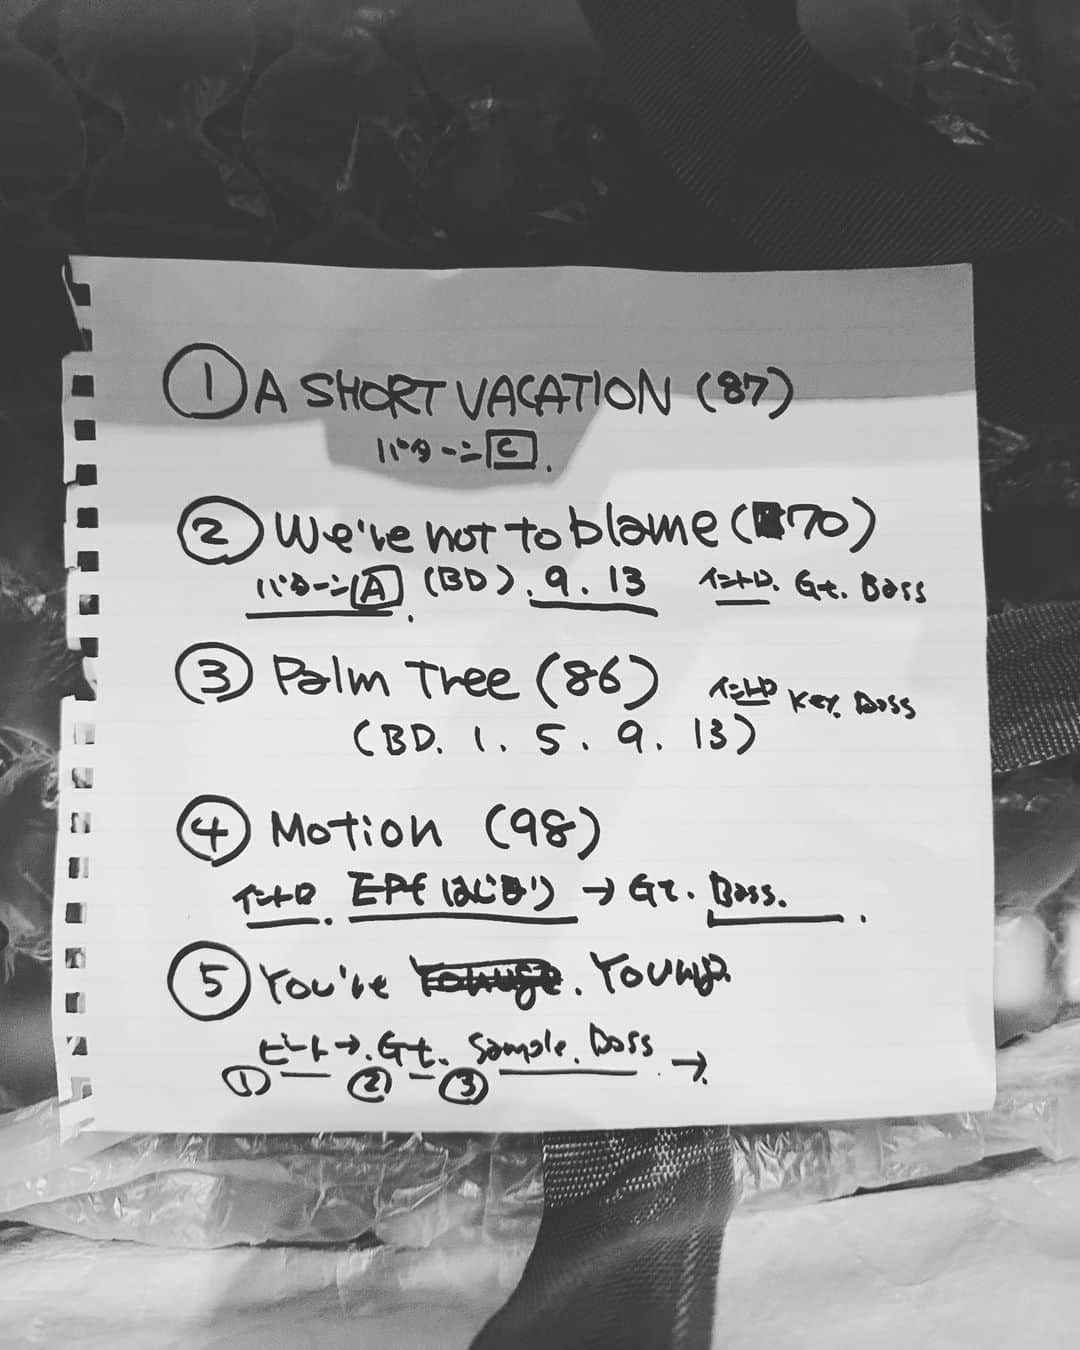 ① A SHORT VACATION (87)
パターン C.
② We're not to blame (70)
パターン A. (BD). 9. 13 イントロ. Gt. Bass
③ Palm Tree (86) イントロ Key. Bass
(BD. 1. 5. 9. 13)
④ Motion (98)
イントロ. E.Pf はじまり → Gt. Bass.
⑤ You're Young.
ビート →. Gt. Sample. Bass. →.
① ② ③